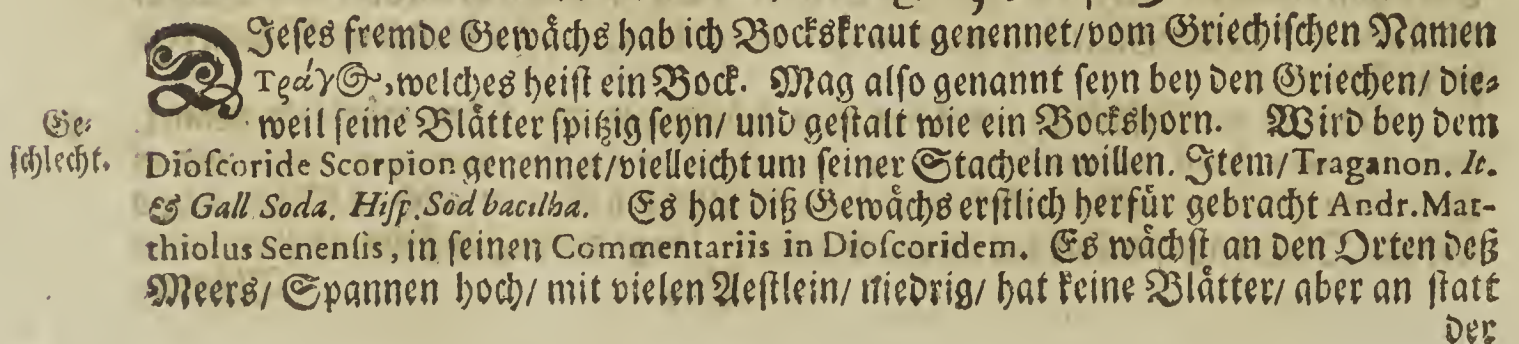 DJeses fremde Gewächs hab ich Bockskraut genennet/vom Griechischen Namen
Τράγος, welches heist ein Bock. Mag also genannt seyn bey den Griechen/ die-
weil seine Blätter spitzig seyn/ und gestalt wie ein Bockshorn. Wird bey dem
Ge-
schlecht.
Dioscoride Scorpion genennet/vielleicht um seiner Stacheln willen. Jtem/Traganon. It.
& Gall Soda. Hisp. Sod bacilha. Es hat diß Gewächs erstlich herfür gebracht Andr. Mat-
thiolus Senensis, in seinen Commentariis in Dioscoridem. Es wächst an den Orten deß
Meers/ Spannen hoch/ mit vielen Aestlein/ niedrig/ hat keine Blätter/ aber an statt
der